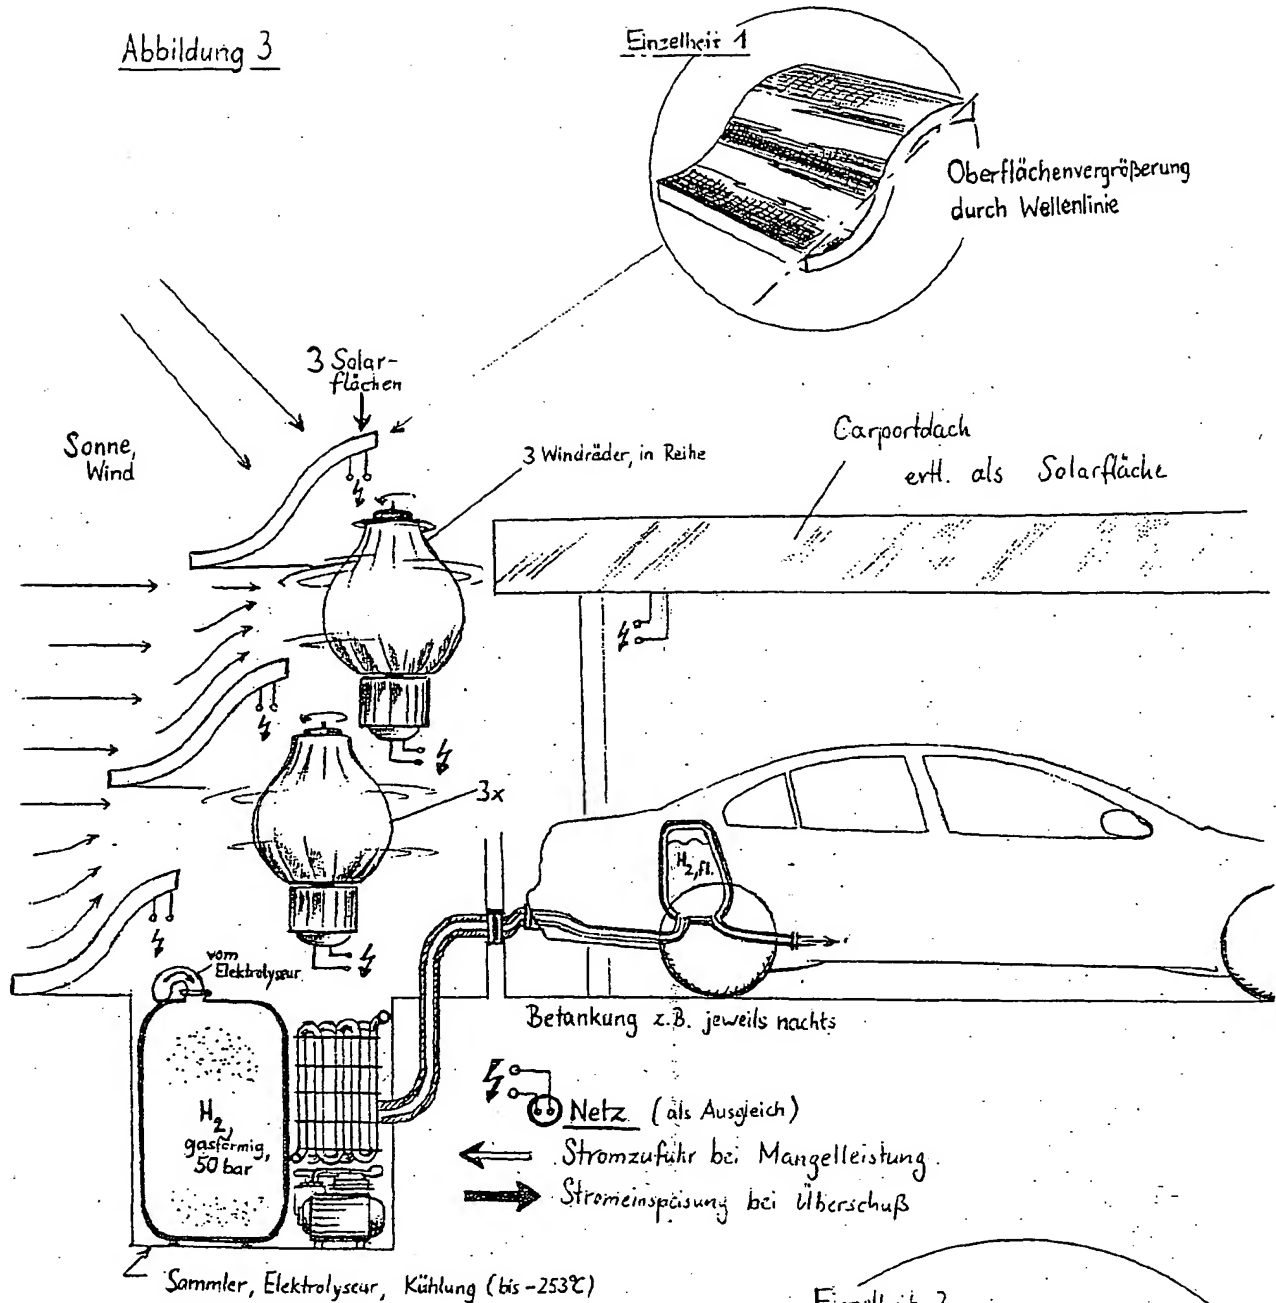 Abbildung 3
Einzelheit 1
Oberflächenvergrößerung
durch Wellenlinie
3 Solar-
flächen
Sonne,
Wind
3 Windräder, in Reihe
Carportdach
ertl. als Solarfläche
3x
H2, fl.
vom
Elektrolyseur
Betankung z.B. jeweils nachts
H2,
gasförmig,
50 bar
Netz (als Ausgleich)
Stromzufuhr bei Mangelleistung
Stromeinspeisung bei Überschuß
Sammler, Elektrolyseur, Kühlung (bis -253°C)
Einzelheit 2